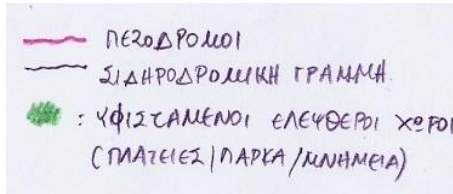 ΠΕΖΟΔΡΟΜΟΙ
ΣΙΔΗΡΟΔΡΟΜΙΚΗ ΓΡΑΜΜΗ.
: ΥΦΙΣΤΑΜΕΝΟΙ ΕΛΕΥΘΕΡΟΙ ΧΩΡΟΙ
(ΠΛΑΤΕΙΕΣ/ΠΑΡΚΑ/ΜΝΗΜΕΙΑ)